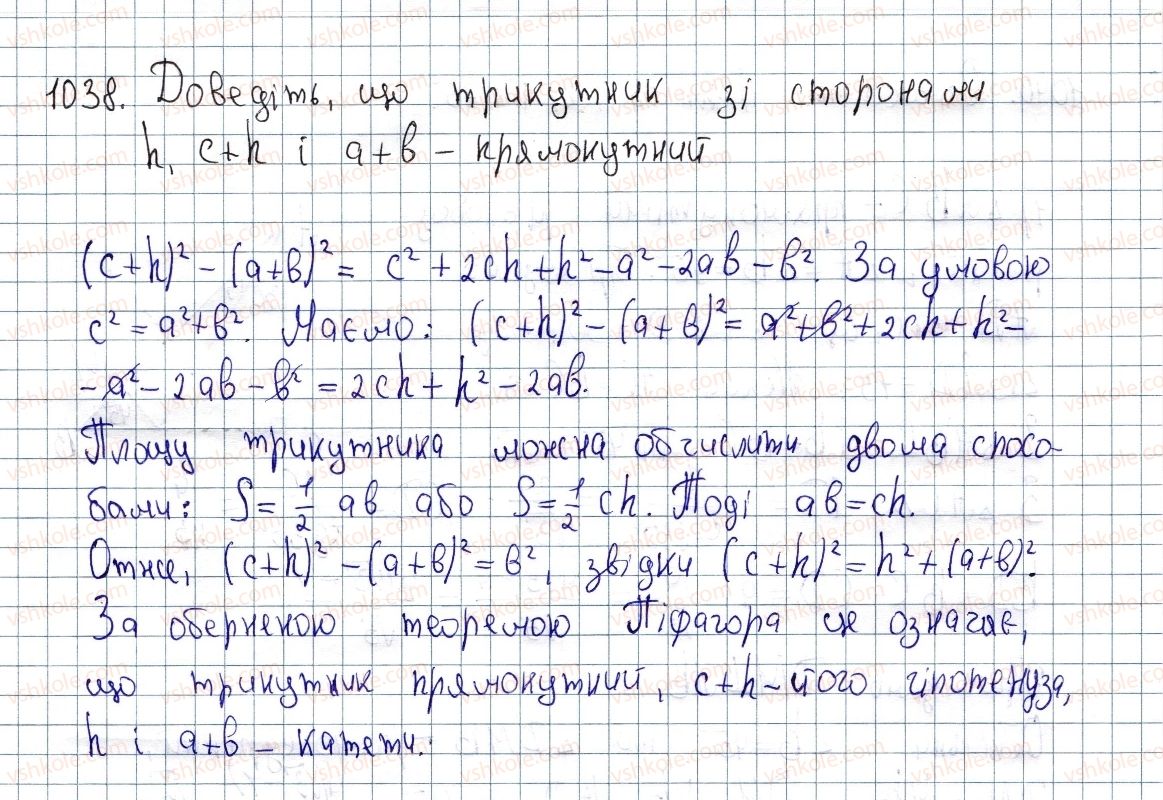 1038. Доведіть, що трикутник зі сторонами
h, c+h і a+b – прямокутний
(c+h)² – (a+b)² = c² + 2ch + h² – a² – 2ab – b². За умовою
c² = a² + b². Маємо: (c+h)² – (a+b)² = a² + b² + 2ch + h² –
– a² – 2ab – b² = 2ch + h² – 2ab.
Площу трикутника можна обчислити двома спосо-
бами: S = 1/2 ab або S = 1/2 ch. Тоді ab = ch.
Отже, (c+h)² – (a+b)² = b², звідки (c+h)² = h² + (a+b)².
За оберненою теоремою Піфагора це означає,
що трикутник прямокутний, c+h – його гіпотенуза,
h і a+b – катети.